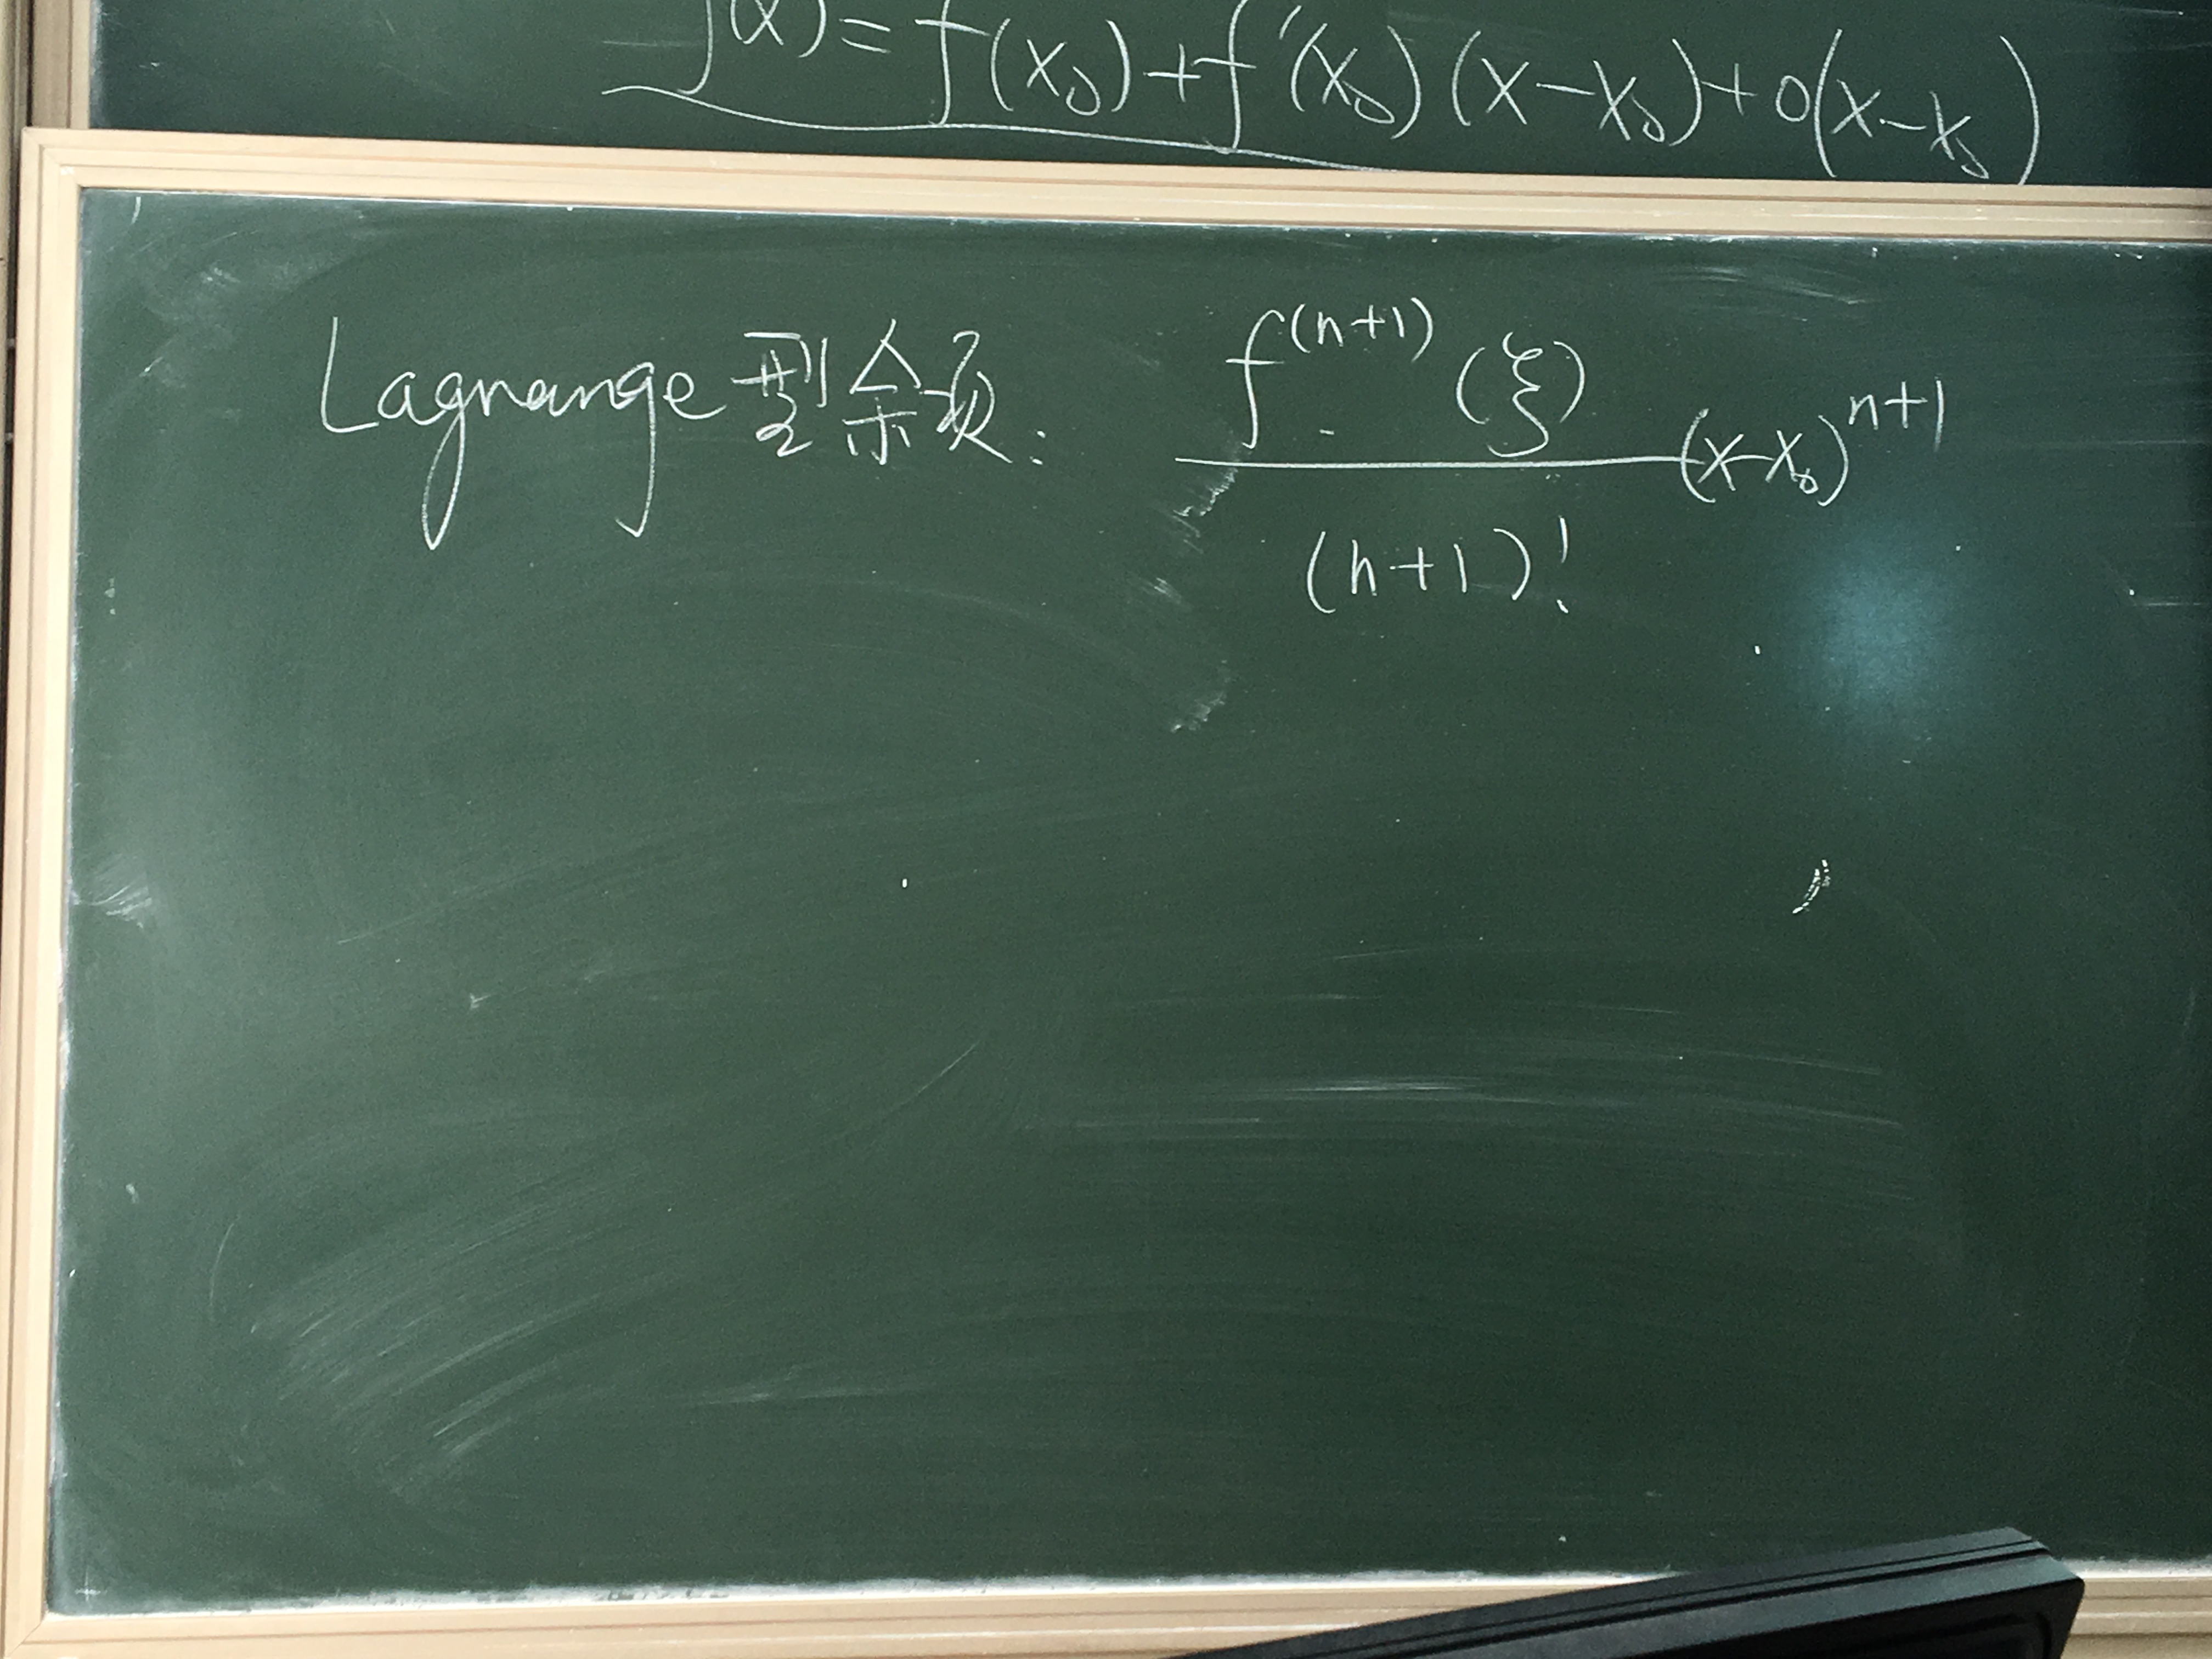 f(x)=f(x₀)+f'(x₀)(x-x₀)+o(x-x₀)
Lagrange型余项: f⁽ⁿ⁺¹⁾(ξ)/(n+1)! (x-x₀)ⁿ⁺¹